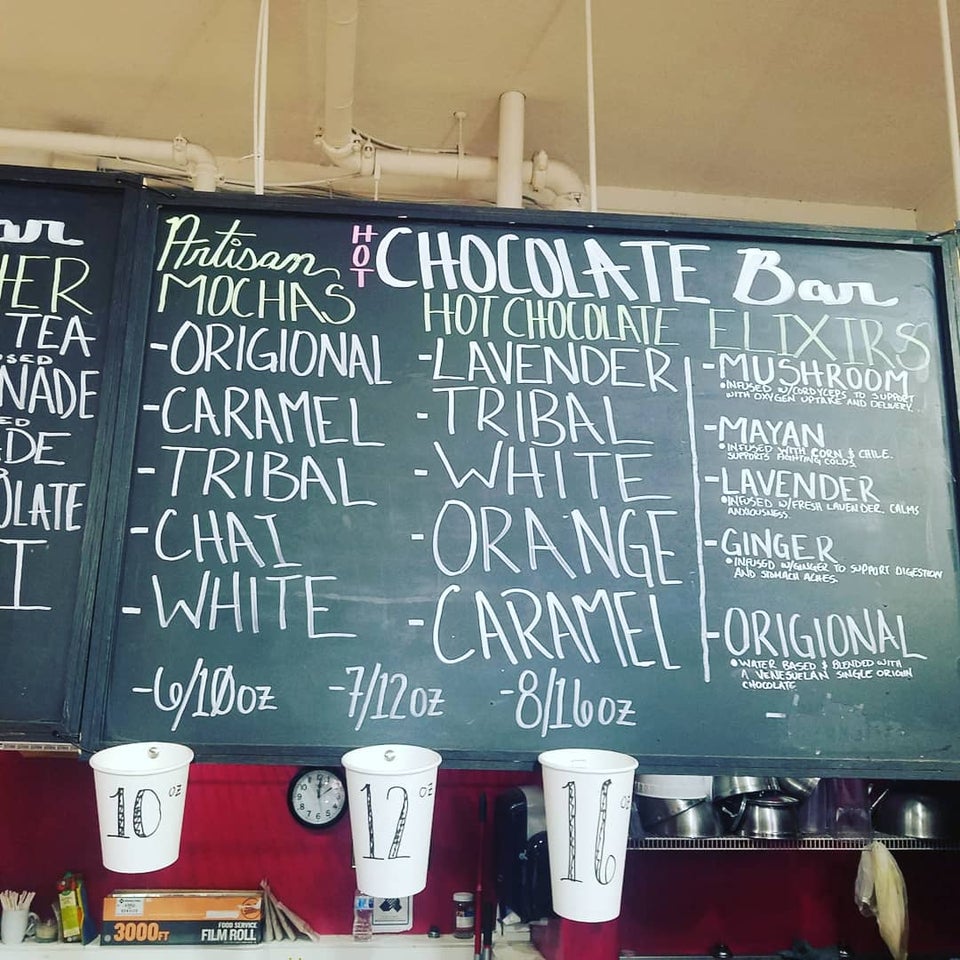 HER
TEA
NADE
DE
OLATE
I
Artisan
MOCHAS
-ORIGIONAL
-CARAMEL
-TRIBAL
-CHAI
-WHITE
HOT CHOCOLATE Bar
HOT CHOCOLATE
-LAVENDER
-TRIBAL
-WHITE
-ORANGE
-CARAMEL
ELIXIRS
-MUSHROOM
•INFUSED W/CORDYCEPS TO SUPPORT
WITH OXYGEN UPTAKE AND DELIVERY.
-MAYAN
•INFUSED WITH CORN & CHILE.
SUPPORTS FIGHTING COLDS.
-LAVENDER
•INFUSED W/FRESH LAVENDER. CALMS
ANXIOUSNESS.
-GINGER
•INFUSED W/GINGER TO SUPPORT DIGESTION
AND STOMACH ACHES.
-ORIGIONAL
•WATER BASED & BLENDED WITH
A VENESUELAN SINGLE ORIGIN
CHOCOLATE
-6/10oz -7/12oz -8/16oz
10 oz
12 oz
16 oz
3000FT
FOOD SERVICE
FILM ROLL